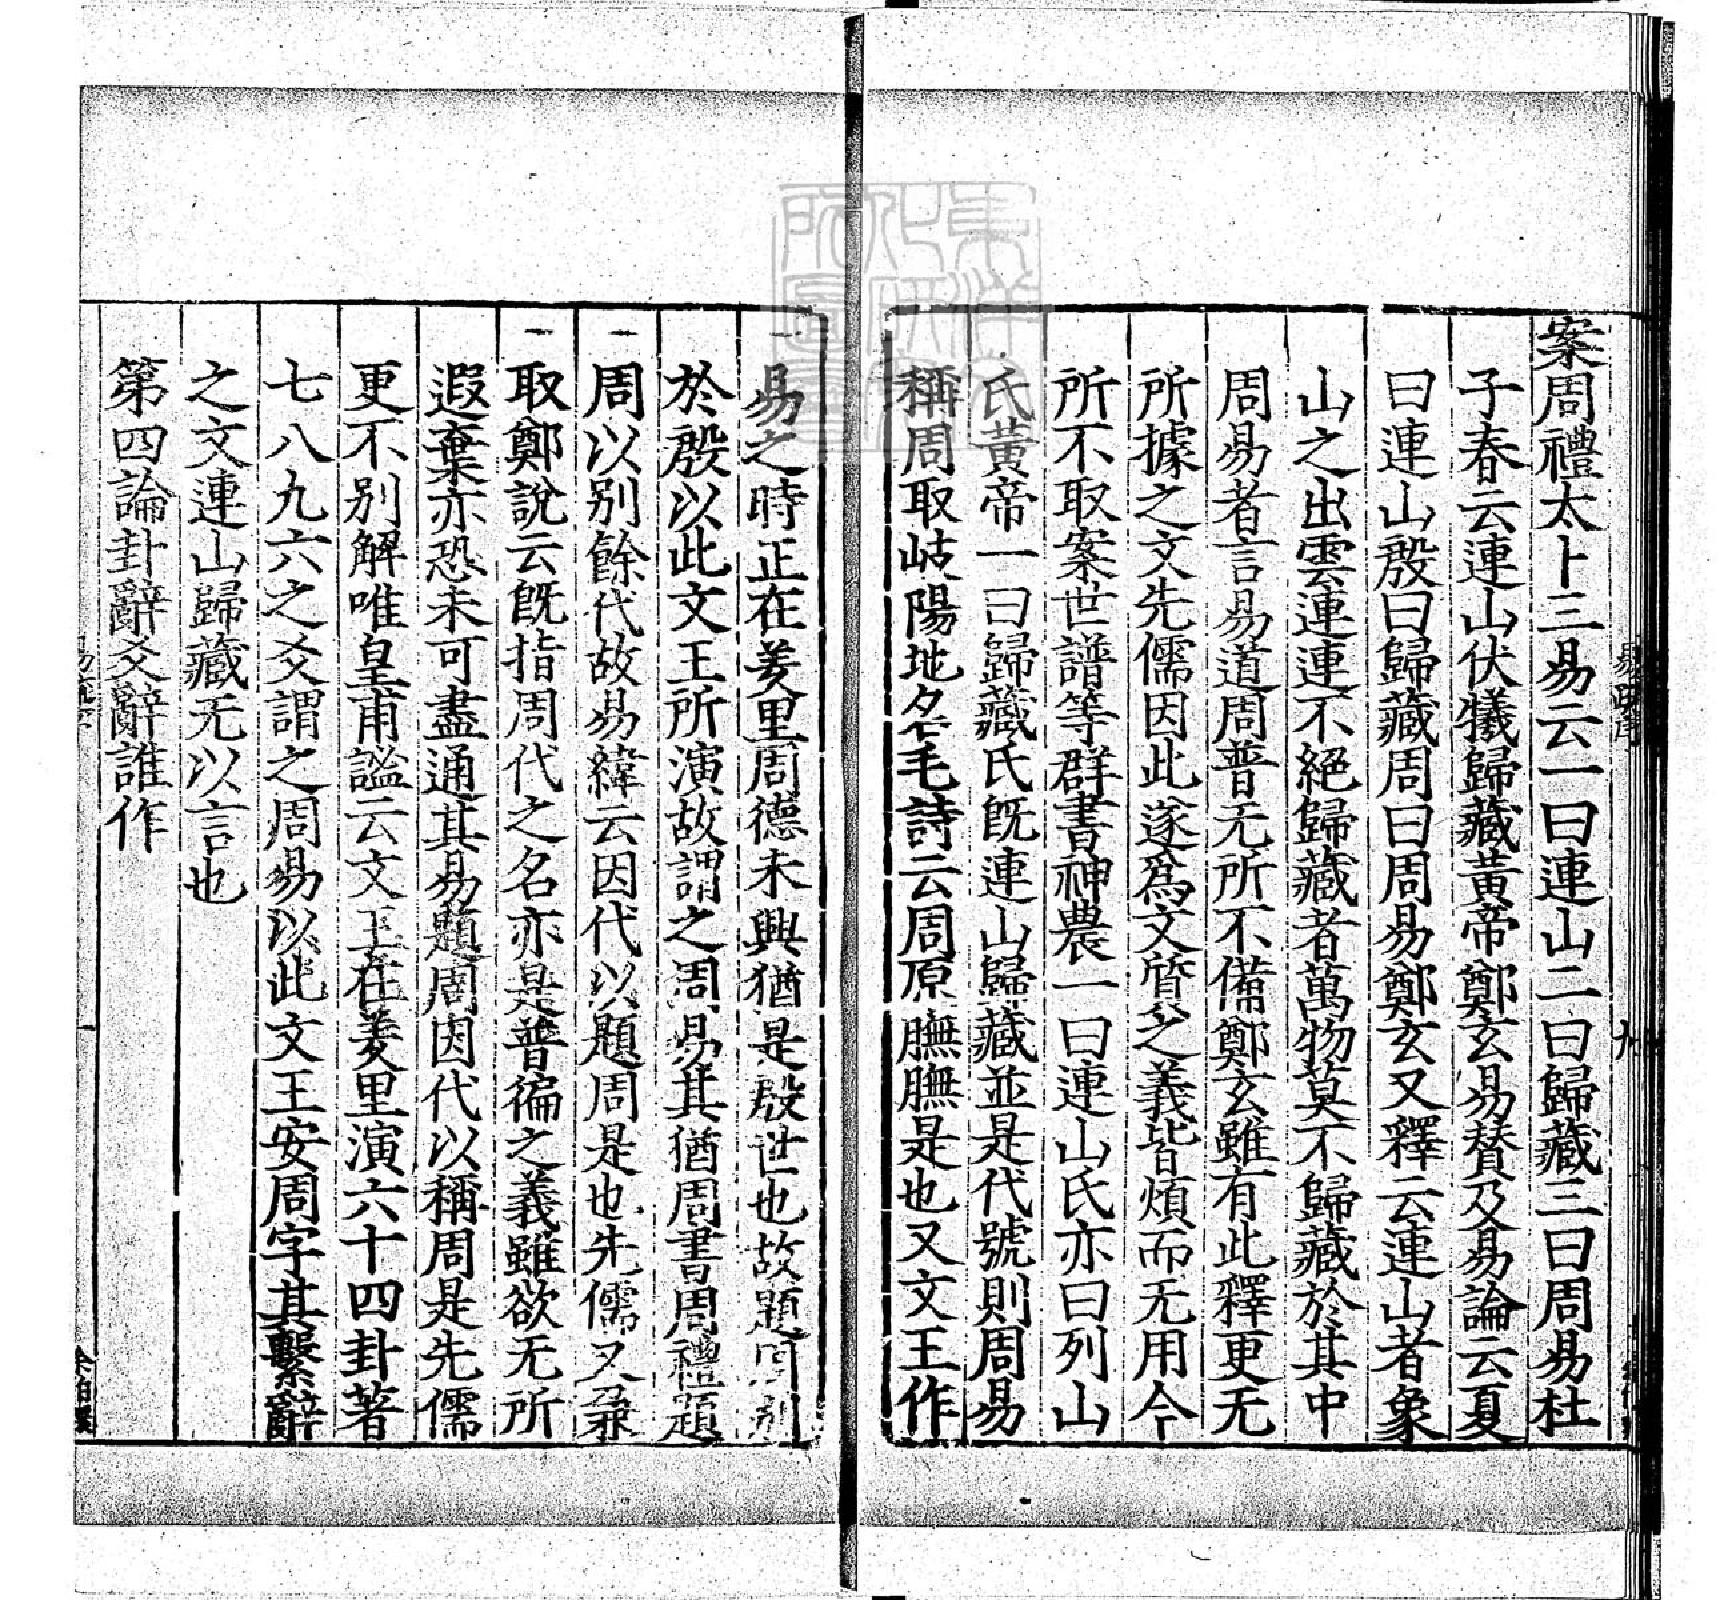 案周禮太卜三易云一曰連山二曰歸藏三曰周易杜
子春云連山伏犧歸藏黃帝鄭玄易賛及易論云夏
曰連山殷曰歸藏周曰周易鄭玄又釋云連山者象
山之出雲連連不絕歸藏者萬物莫不歸藏於其中
周易者言易道周普无所不備鄭玄雖有此釋更无
所據之文先儒因此遂爲文質之義皆煩而无用今
所不取案世譜等群書神農一曰連山氏亦曰列山
氏黃帝一曰歸藏氏旣連山歸藏並是代號則周易
稱周取岐陽地名毛詩云周原膴膴是也又文王作
易之時正在羑里周德未興猶是殷世也故題周別
於殷以此文王所演故謂之周易其猶周書周禮題
周以别餘代故易緯云因代以題周是也先儒又兼
取鄭說云旣指周代之名亦是普徧之義雖欲无所
遐棄亦恐未可盡通其易題周因代以稱周是先儒
更不别解唯皇甫謐云文王在羑里演六十四卦著
七八九六之爻謂之周易以此文王安周字其繫辭
之文連山歸藏无以言也
第四論卦辭爻辭誰作